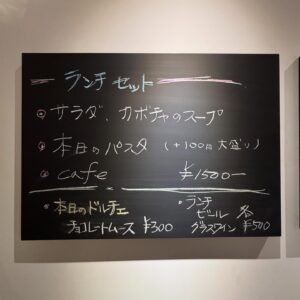 ランチ セット
サラダ、カボチャのスープ
本日のパスタ (+100円 大盛り)
cafe ¥1500-
・本日のドルチェ
チョコレートムース ¥300
・ランチ
ビール 各
グラスワイン ¥500